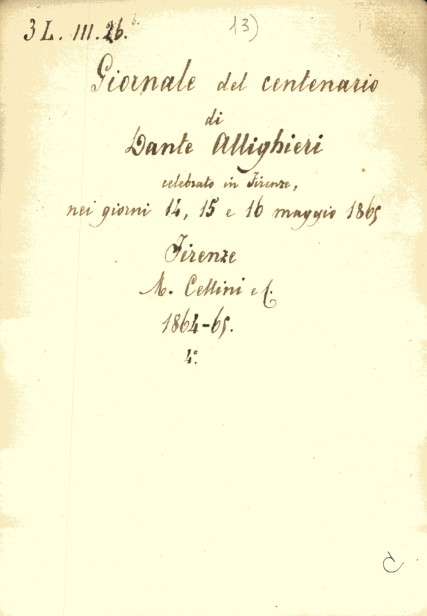 3 L. III. 26.b.
13)
Giornale del centenario
di
Dante Allighieri
celebrato in Firenze,
nei giorni 14, 15 e 16 maggio 1865
Firenze
M. Cellini e C.
1864-65.
4°
C